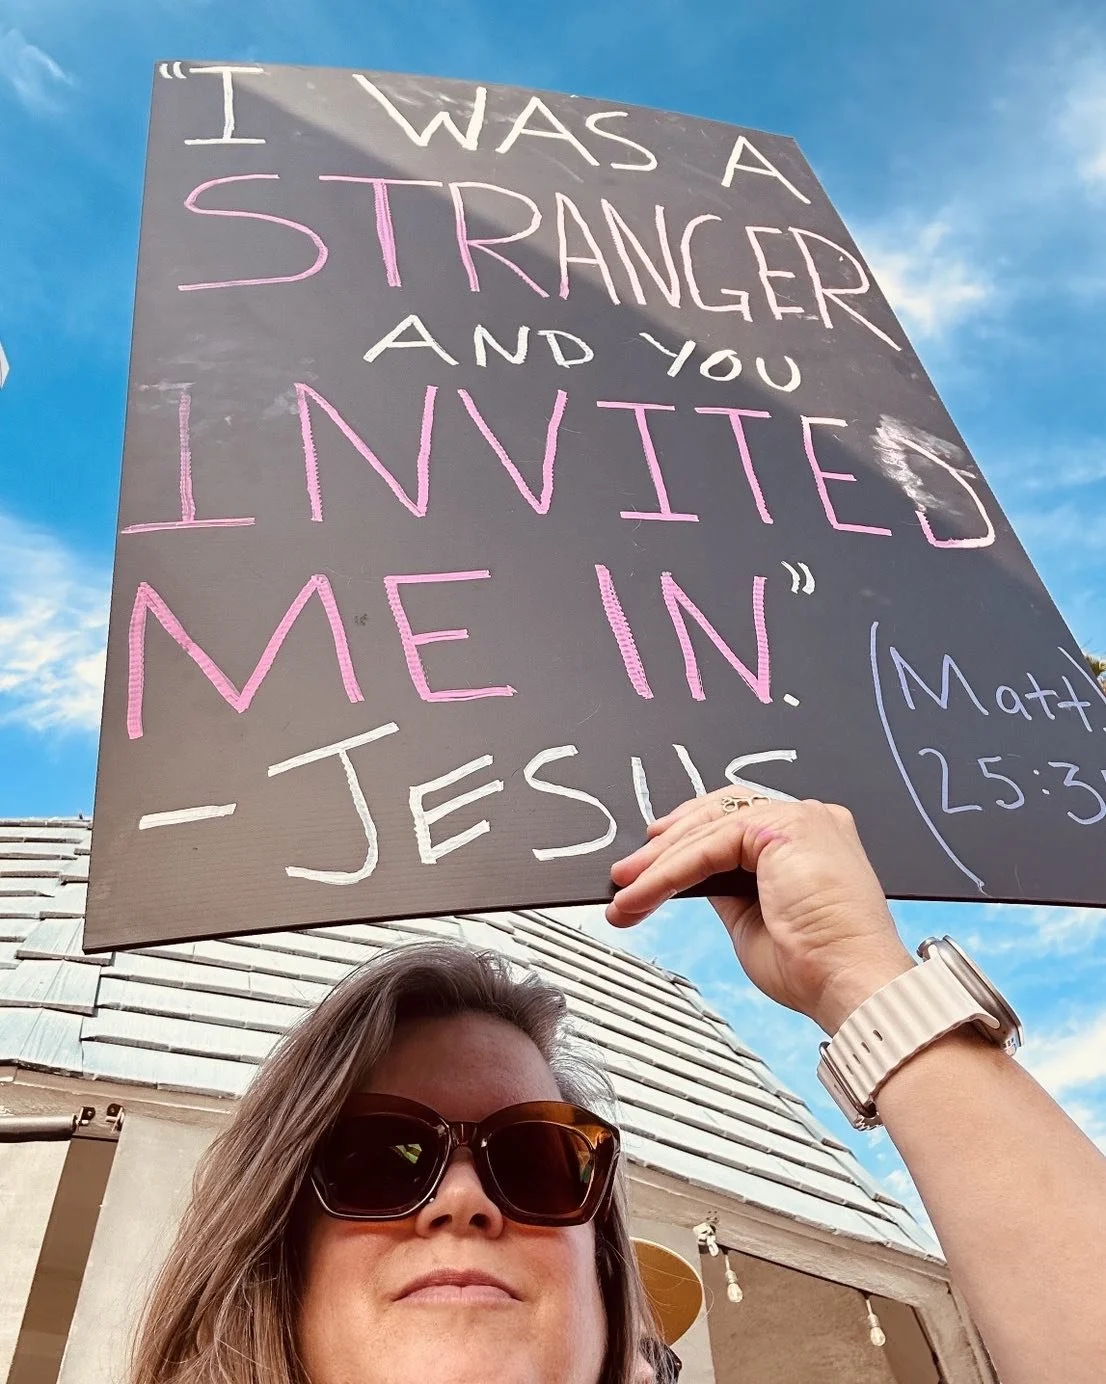 "I WAS A
STRANGER
AND YOU
INVITED
ME IN".
- JESUS
(Matt
25:3